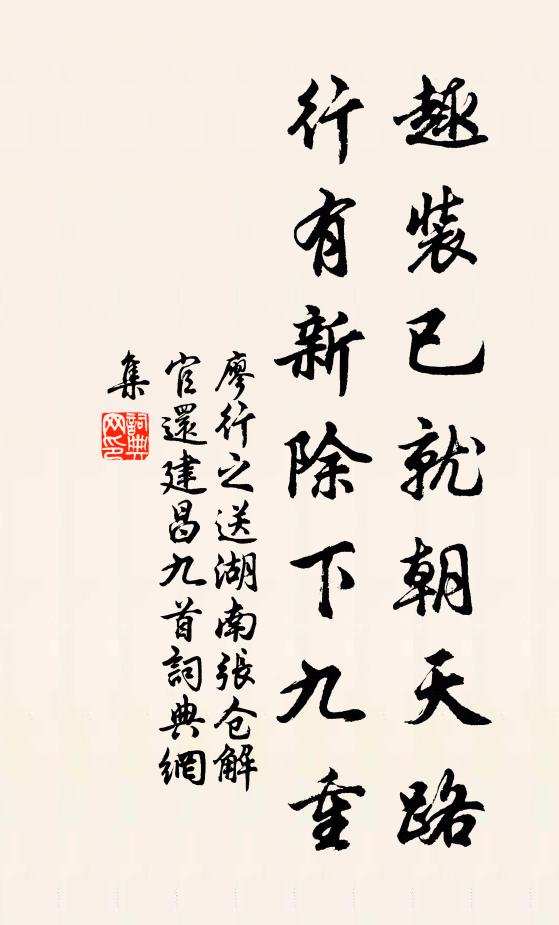 趣装已就朝天路
行有新除下九重
廖行之送湖南張仓解
官還建昌九首詞典網
集
詞典
网印